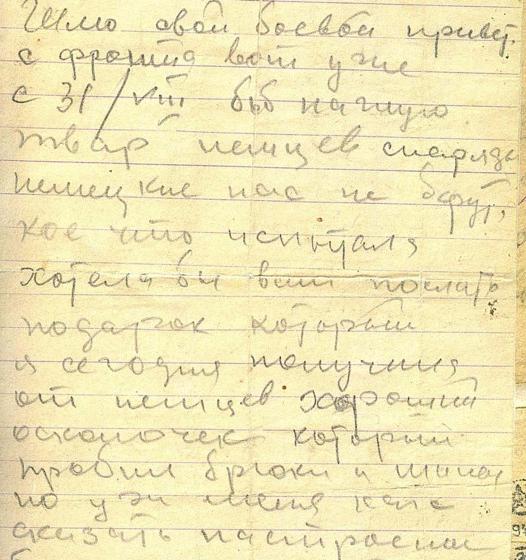 Шлю свой боевой привет
с фронта вот уже
с 31/VIII бью наглую
тварь немцев снаряды
немецкие нас не берут,
кое что испытала
хотела бы вам послать
подарок который
я сегодня получила
от немцев хороший
осколочек который
пробил брюки и
но у меня
сказать настроение